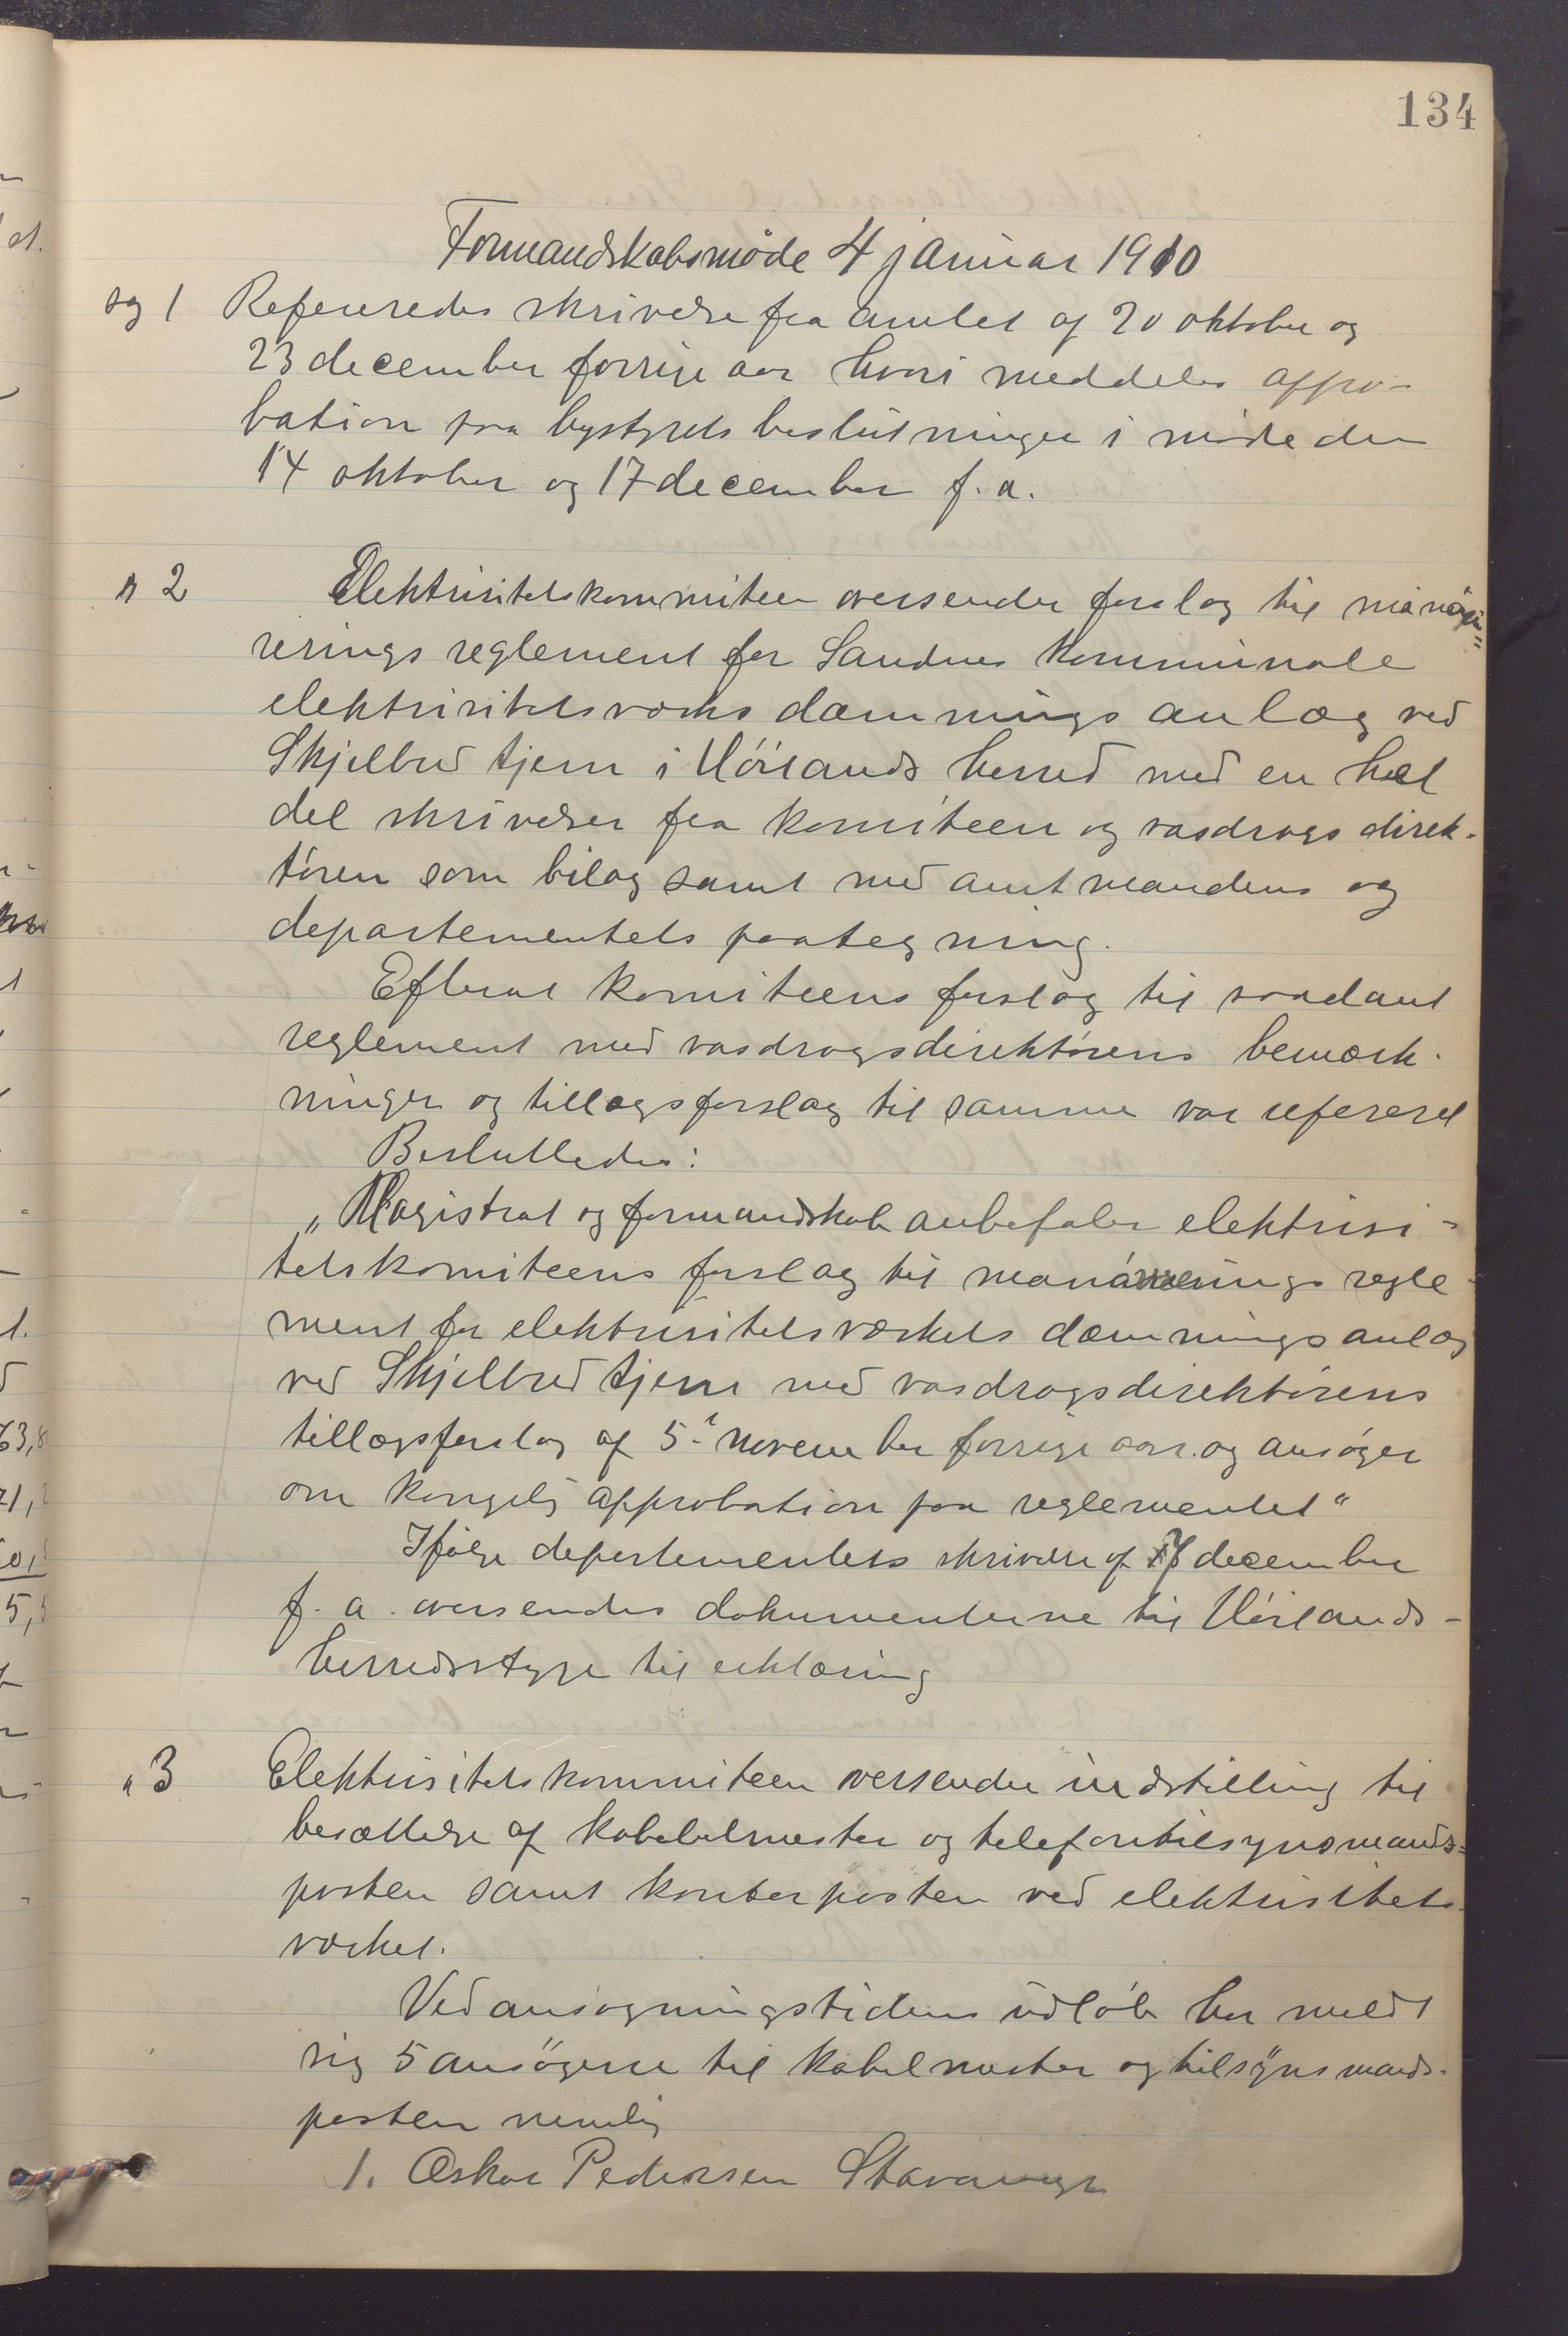 134
Formandskabsmöde 4 januar 1910
sag 1 Refereredes skrivelse fra amtet af 20 oktober og
23 december forrige aar hvori meddeles appro-
bation paa bystyrets beslutninger i möde den
14 oktober og 17 december f. a.
" 2 Elektrisitetskommiteen oversender forslag til manövre=
rings reglement for Sandnes kommunale
elektrisitetsværks dæmnings anlæg ved
Skjelbred tjern i Höilands herred med en hel
del skrivelser fra komiteen og vasdrags direk-
tören som bilag samt med amtmandens og
departementets paategning.
Efterat komiteens forslag til saadant
reglement med vasdragsdirektörens bemærk-
ninger og tillægsforslag til samme var refereret
Besluttedes:
"Magistrat og formandskab anbefaler elektrisi-
tetskomiteens forslag til manövrerings regle-
ment for elektrisitetsværkets dæmnings anlæg
ved Skjelbred tjern med vasdragsdirektörens
tillægsforslag af 5. november forrige aar og ansöger
om kongelig approbation paa reglementet"
Ifölge departementets skrivelse af december
f. a. oversendes dokumenterne til Höilands-
herredsstyre til erklæring
" 3 Elektrisitetskommiteen oversender indstilling til
besættelse af kabelmester og telefontilsynsmands=
posten samt kontorposten ved elektrisitets-
værket.
Ved ansögningstidens udlöb har meldt
sig 5 ansögere til kabelmester og tilsynsmands-
posten nemlig
1. Oskar Pedersen Stavanger